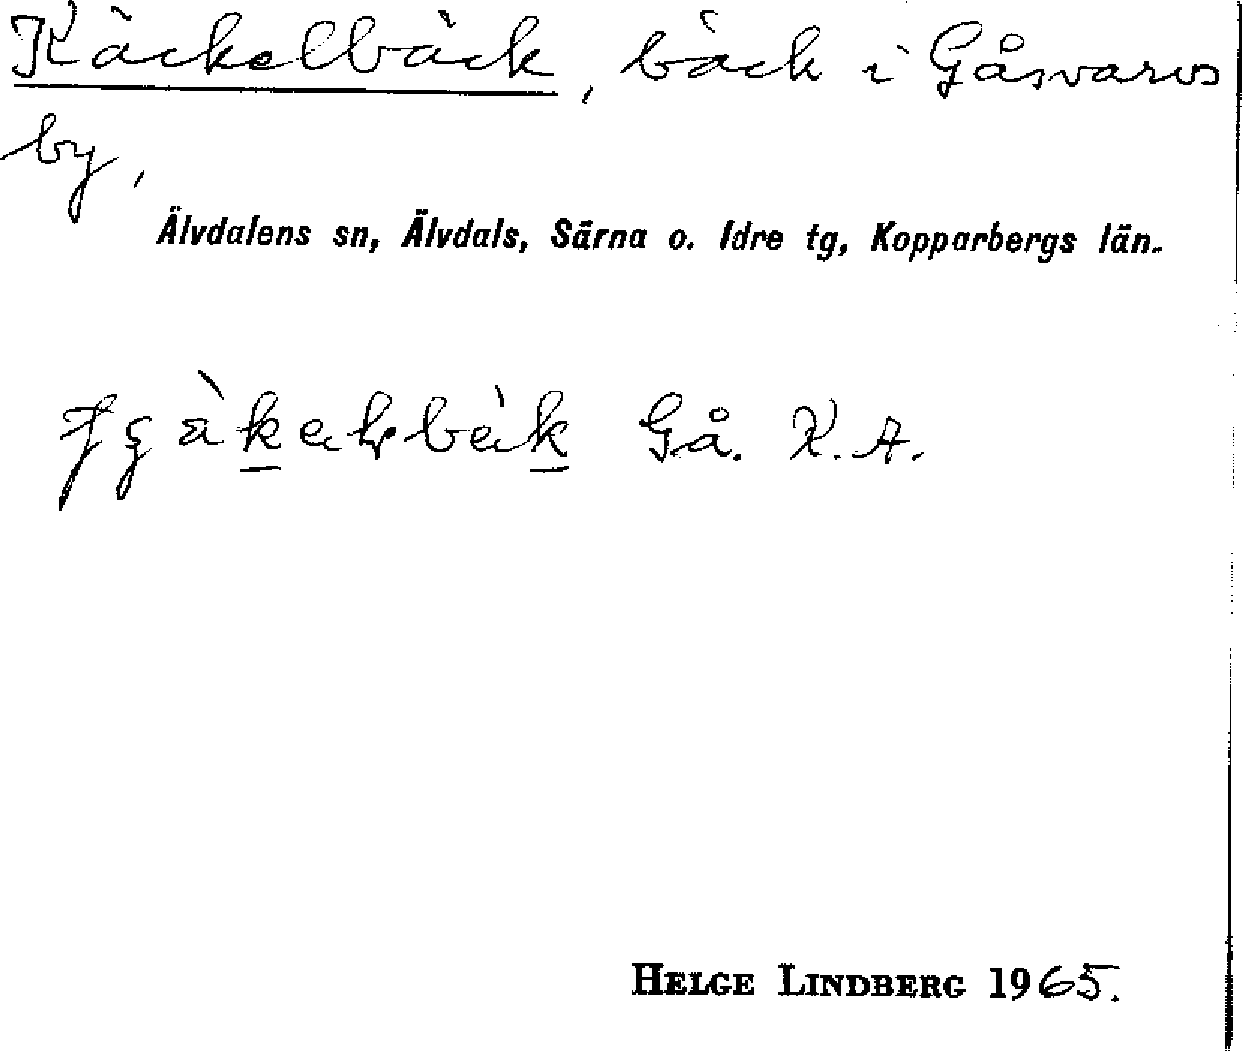 Käckelbäck, bäck i Gåsvarvs
by,
Älvdalens sn, Älvdals, Särna o. Idre tg, Kopparbergs län.
Gå. K. A.
HELGE LINDBERG 1965.